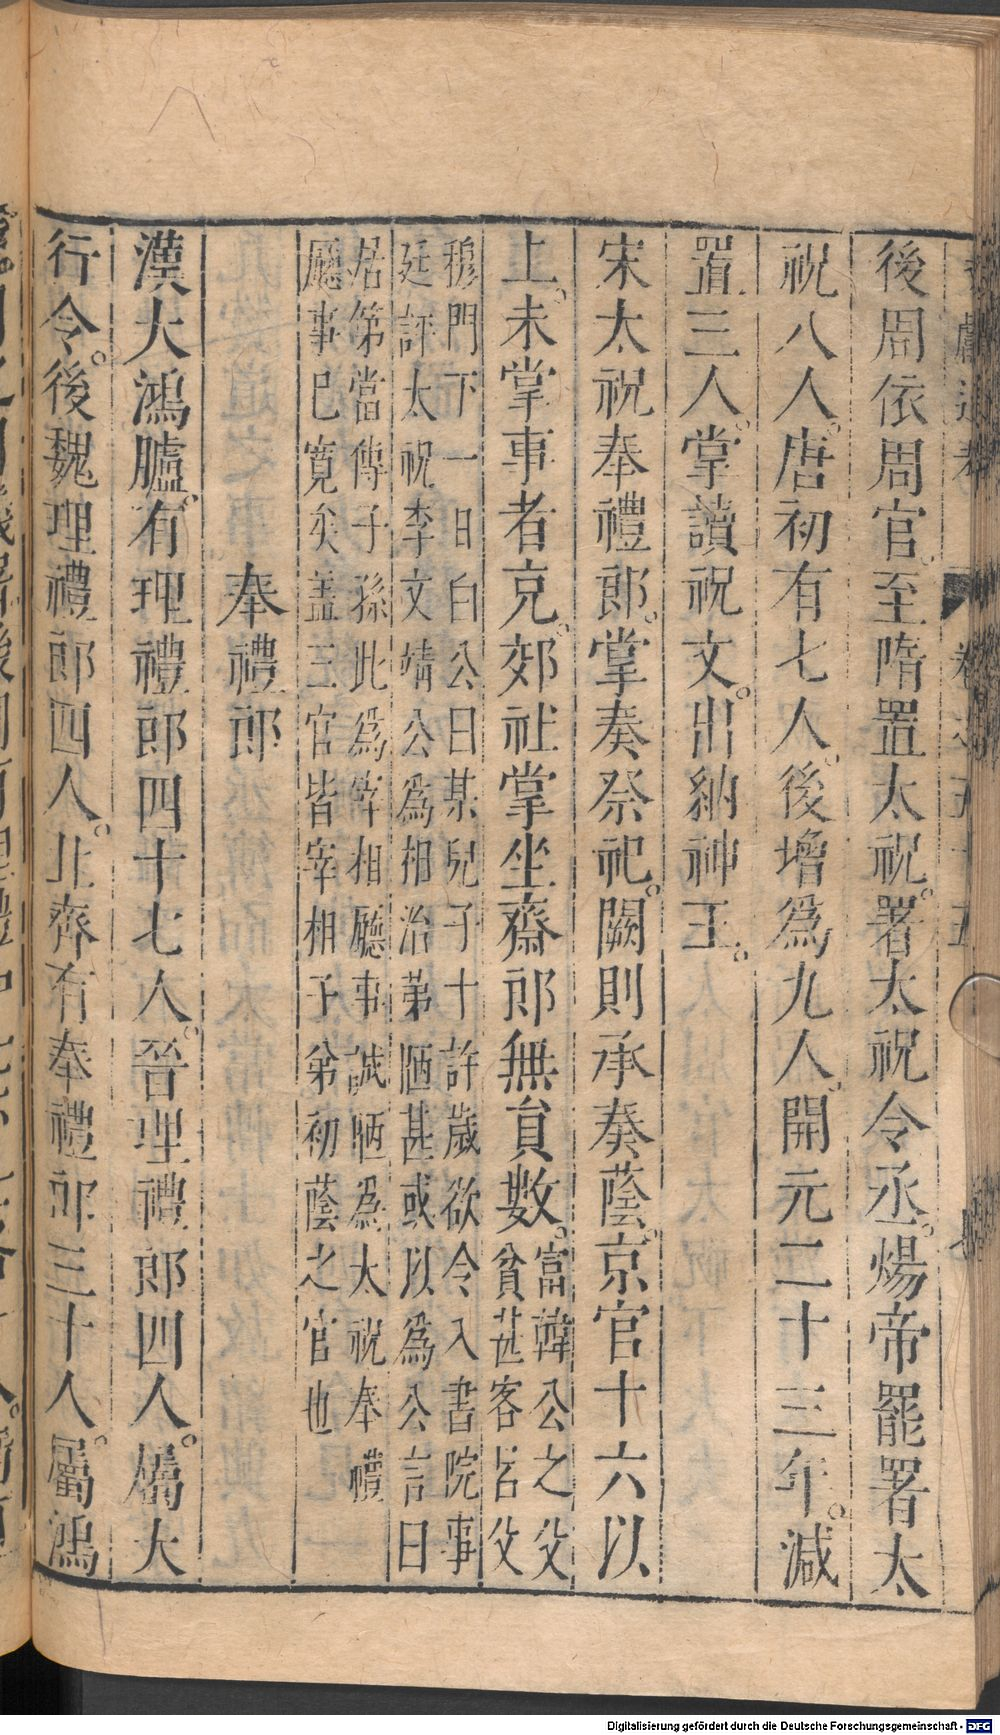 後周依周官。至隋置太祝。署太祝令丞。煬帝罷署太
祝八人。唐初有七人。後增爲九人。開元二十三年。減
置三人。掌讀祝文。出納神主。
宋太祝奉禮郎。掌奏祭祀。闕則承奏蔭。京官十六以
上。未掌事者充。郊社掌坐齋郎無員數。富韓公之父
貧甚客呂文
穆門下一日白公曰某兒子十許歲欲令入書院事
廷評太祝李文靖公爲相治第陋甚或以爲公言曰
居第當傳子孫此爲宰相廳事誠陋爲太祝奉禮
廳事已寬矣盖三官皆宰相子弟初蔭之官也
奉禮郎
漢大鴻臚。有理禮郎四十七人。晉理禮郎四人。屬大
行令。後魏理禮郎四人。北齊有奉禮郎三十人。屬鴻
Digitalisierung gefördert durch die Deutsche Forschungsgemeinschaft - DFG